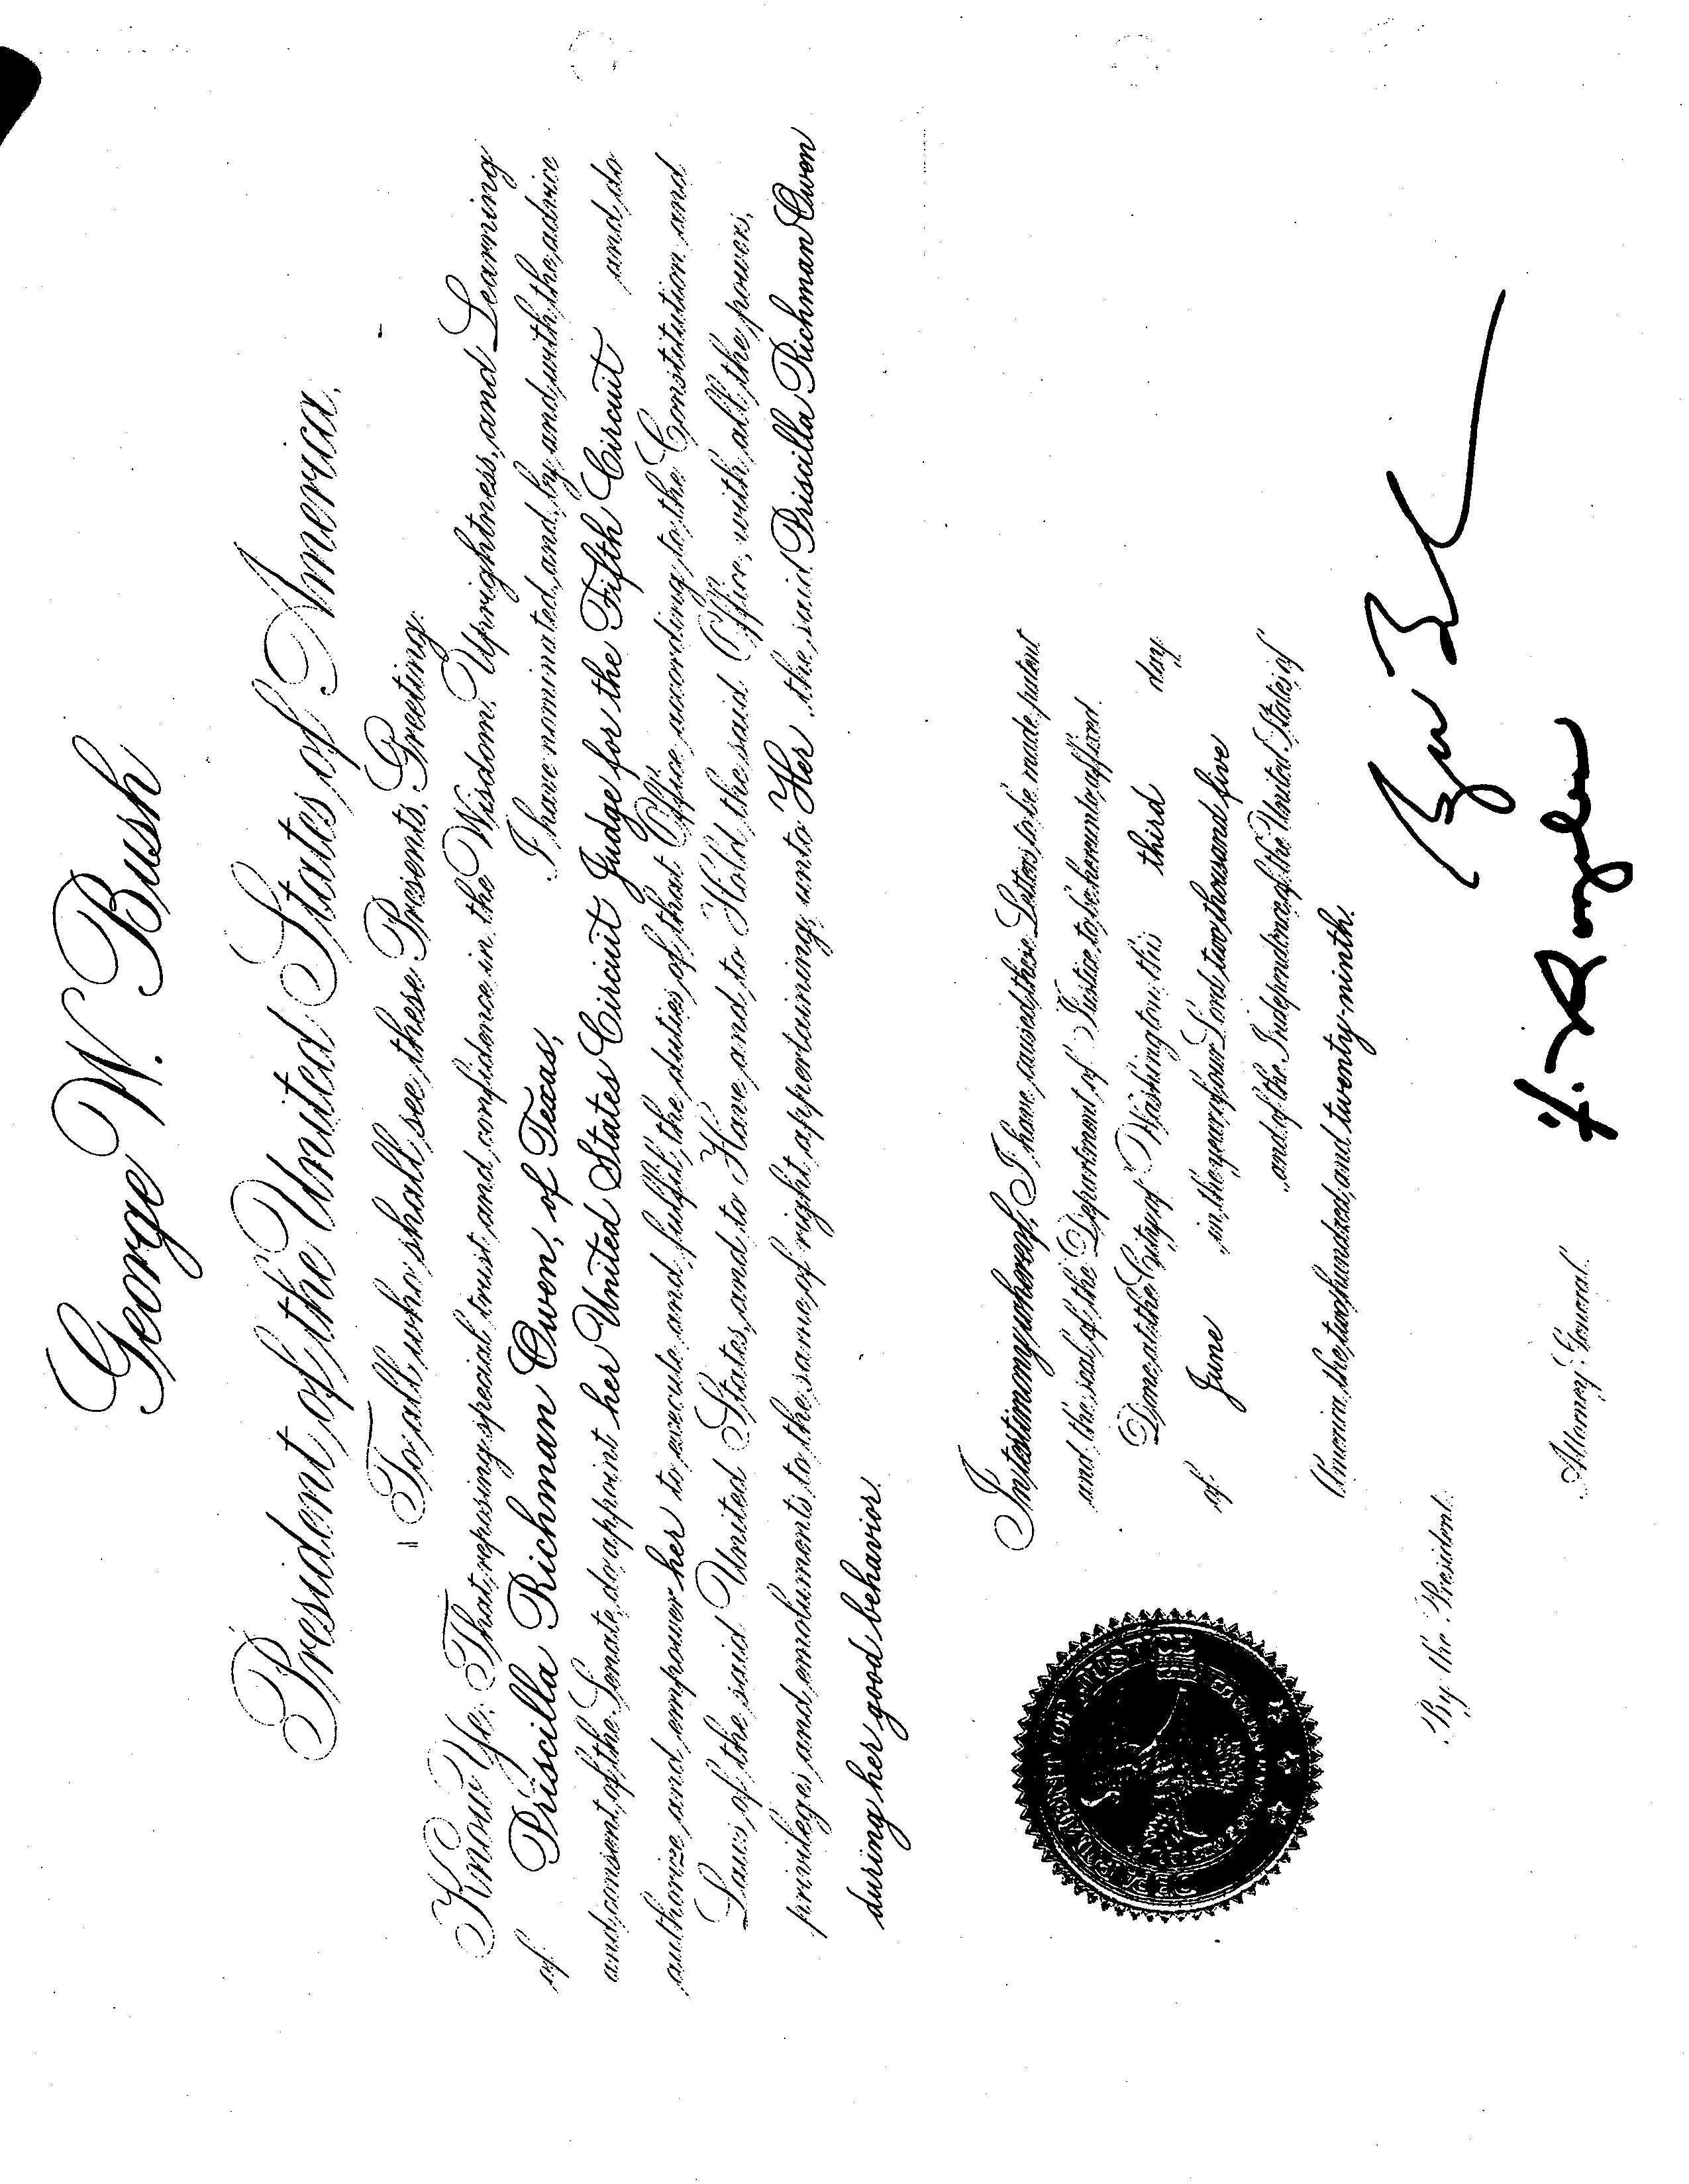 George W. Bush
President of the United States of America,
To all who shall see these Presents, Greeting:
Know Ye; That, reposing special trust and confidence in the Wisdom, Uprightness, and Learning
of Priscilla Richman Owen, of Texas, I have nominated, and, by and with the advice
and consent of the Senate, do appoint her United States Circuit Judge for the Fifth Circuit and do
authorize and empower her to execute and fulfil the duties of that Office according to the Constitution and
Laws of the said United States, and to Have and to Hold the said Office, with all the powers,
privileges and emoluments to the same of right appertaining, unto Her, the said Priscilla Richman Owen
during her good behavior.
In testimony whereof, I have caused these Letters to be made patent
and the seal of the Department of Justice to be hereunto affixed.
DEPARTMENT OF JUSTICE
Done at the City of Washington, this third day
of June in the year of our Lord two thousand five
and of the Independence of the United States of
America, the two hundred and twenty-ninth.
By the President:
Attorney General.